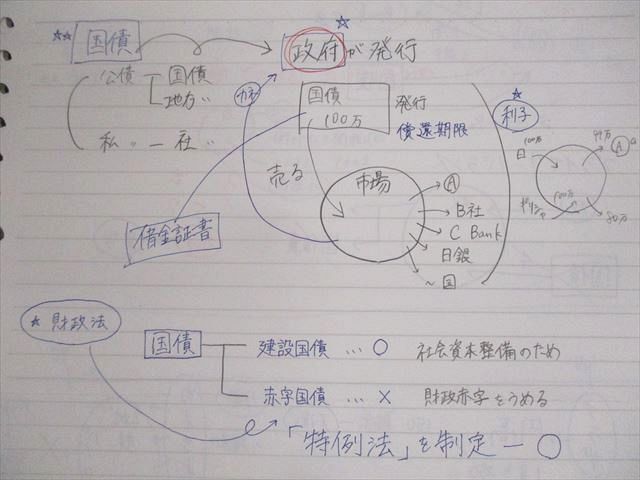 ☆☆ 国債 → 政府が発行 ☆
公債 国債
地方〃
私〃 ー 社〃
カネ
国債
100万
発行
償還期限
☆
利子
売る
市場
借金証書
Ⓐ
B社
C Bank
日銀
～国
100万
日
99万
Ⓐ
ギリシャ
100万
80万
☆ 財政法
国債
建設国債 … ○ 社会資本整備のため
赤字国債 … × 財政赤字をうめる
「特例法」を制定 ー ○